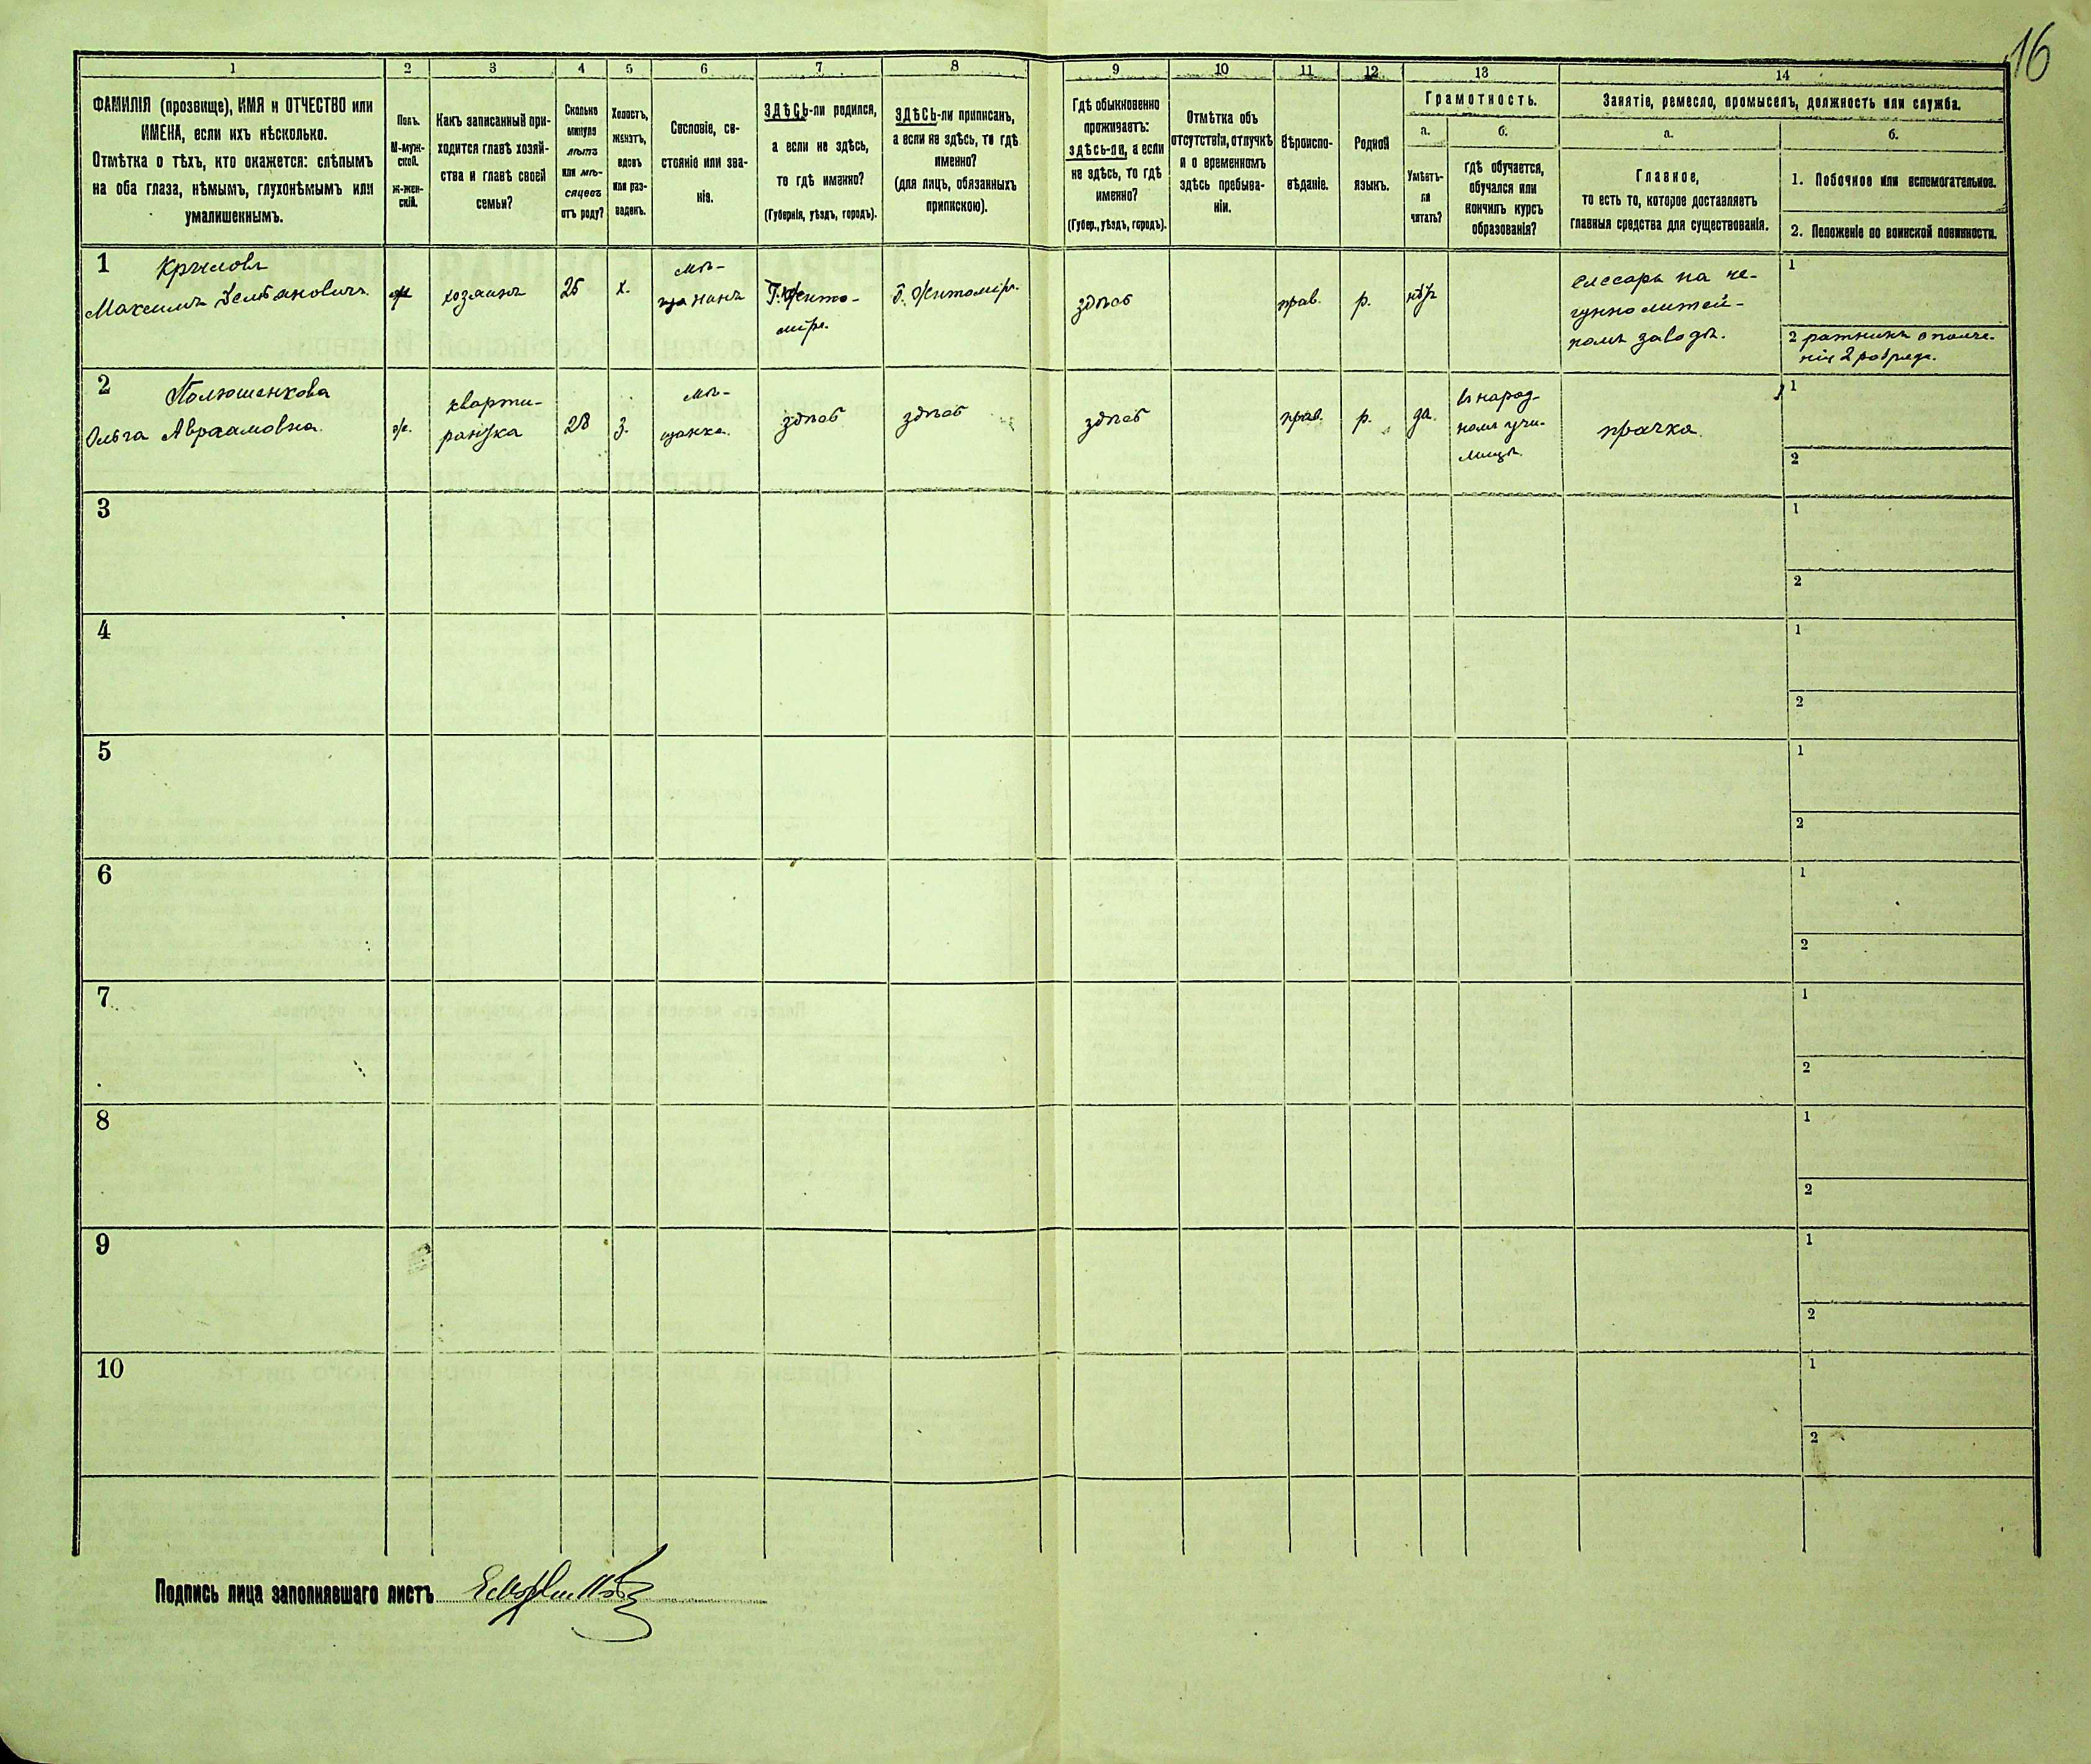 16
1 2 3 4 5 6 7 8 9 10 11 12 13 14
ФАМИЛІЯ (прозвище), ИМЯ и ОТЧЕСТВО или
ИМЕНА, если ихъ нѣсколько.
Отмѣтка о тѣхъ, кто окажется: слѣпымъ
на оба глаза, нѣмымъ, глухонѣмымъ или
умалишеннымъ.
Полъ.
М-муж-
ской.
Ж-жен-
скій.
Какъ записанный при-
ходится главѣ хозяй-
ства и главѣ своей
семьи?
Сколько
минуло
лѣтъ
или мѣ-
сяцевъ
отъ роду?
Холостъ,
женатъ,
вдовъ
или раз-
веденъ.
Сословіе, со-
стояніе или зва-
ніе.
ЗДѢСЬ-ли родился,
а если не здѣсь,
то гдѣ именно?
(Губернія, уѣздъ, городъ).
ЗДѢСЬ-ли приписанъ,
а если не здѣсь, то гдѣ
именно?
(для лицъ, обязанныхъ
припискою).
Гдѣ обыкновенно
проживаетъ:
здѣсь-ли, а если
не здѣсь, то гдѣ
именно?
(Губер., уѣздъ, городъ).
Отмѣтка объ
отсутствіи, отлучкѣ
и о временномъ
здѣсь пребыва-
ніи.
Вѣроиспо-
вѣданіе.
Родной
языкъ.
Грамотность.
а.
Умѣетъ-
ли
читать?
б.
Гдѣ обучается,
обучался или
кончилъ курсъ
образованія?
Занятіе, ремесло, промыселъ, должность или служба.
а.
Главное,
то есть то, которое доставляетъ
главныя средства для существованія.
б.
1. Побочное или вспомогательное.
2. Положеніе по воинской повинности.
1
Крыловъ
Максимъ
хозяинъ
25
х.
мѣ-
щанинъ
Г. Жито-
міръ.
Г. Житоміръ.
здѣсь
прав.
р.
слесарь на чу-
гунно литей-
номъ заводѣ.
1
2 ратникъ ополче-
нія 2 разряда.
2
Ольга Авраамовна.
ж.
кварти-
рантка
28
з.
мѣ-
щанка.
здѣсь
здѣсь
здѣсь
прав.
р.
да
въ народ-
номъ учи-
лищѣ.
прачка.
1
2
3
1
2
4
1
2
5
1
2
6
1
2
7
1
2
8
1
2
9
1
2
10
1
2
Подпись лица заполнявшаго листъ